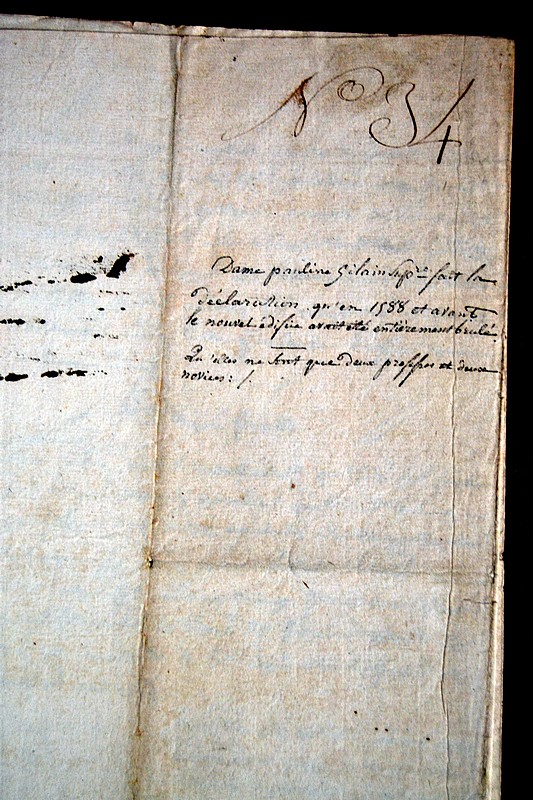 N° 34
Dame pauline Gilain sup.re fait la
déclaration qu'en 1588 et avant
le nouvel édifice avoit été entièrement brulé
Qu'elles ne sont que deux professes et deux
novices: /.